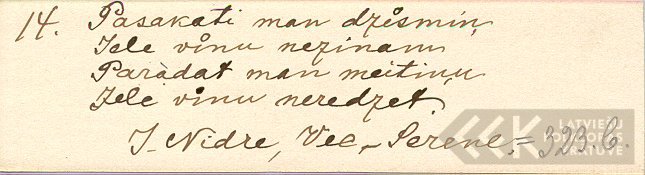 14. Pasakati man dzismin,
Iele vinu nezinam
Paradat man meitinu
Iele vinu neredzet.
J. Nidre, Vec-Serene = 323.6.
LATVIEŠU
FOLKLORAS
KRĀTUVE